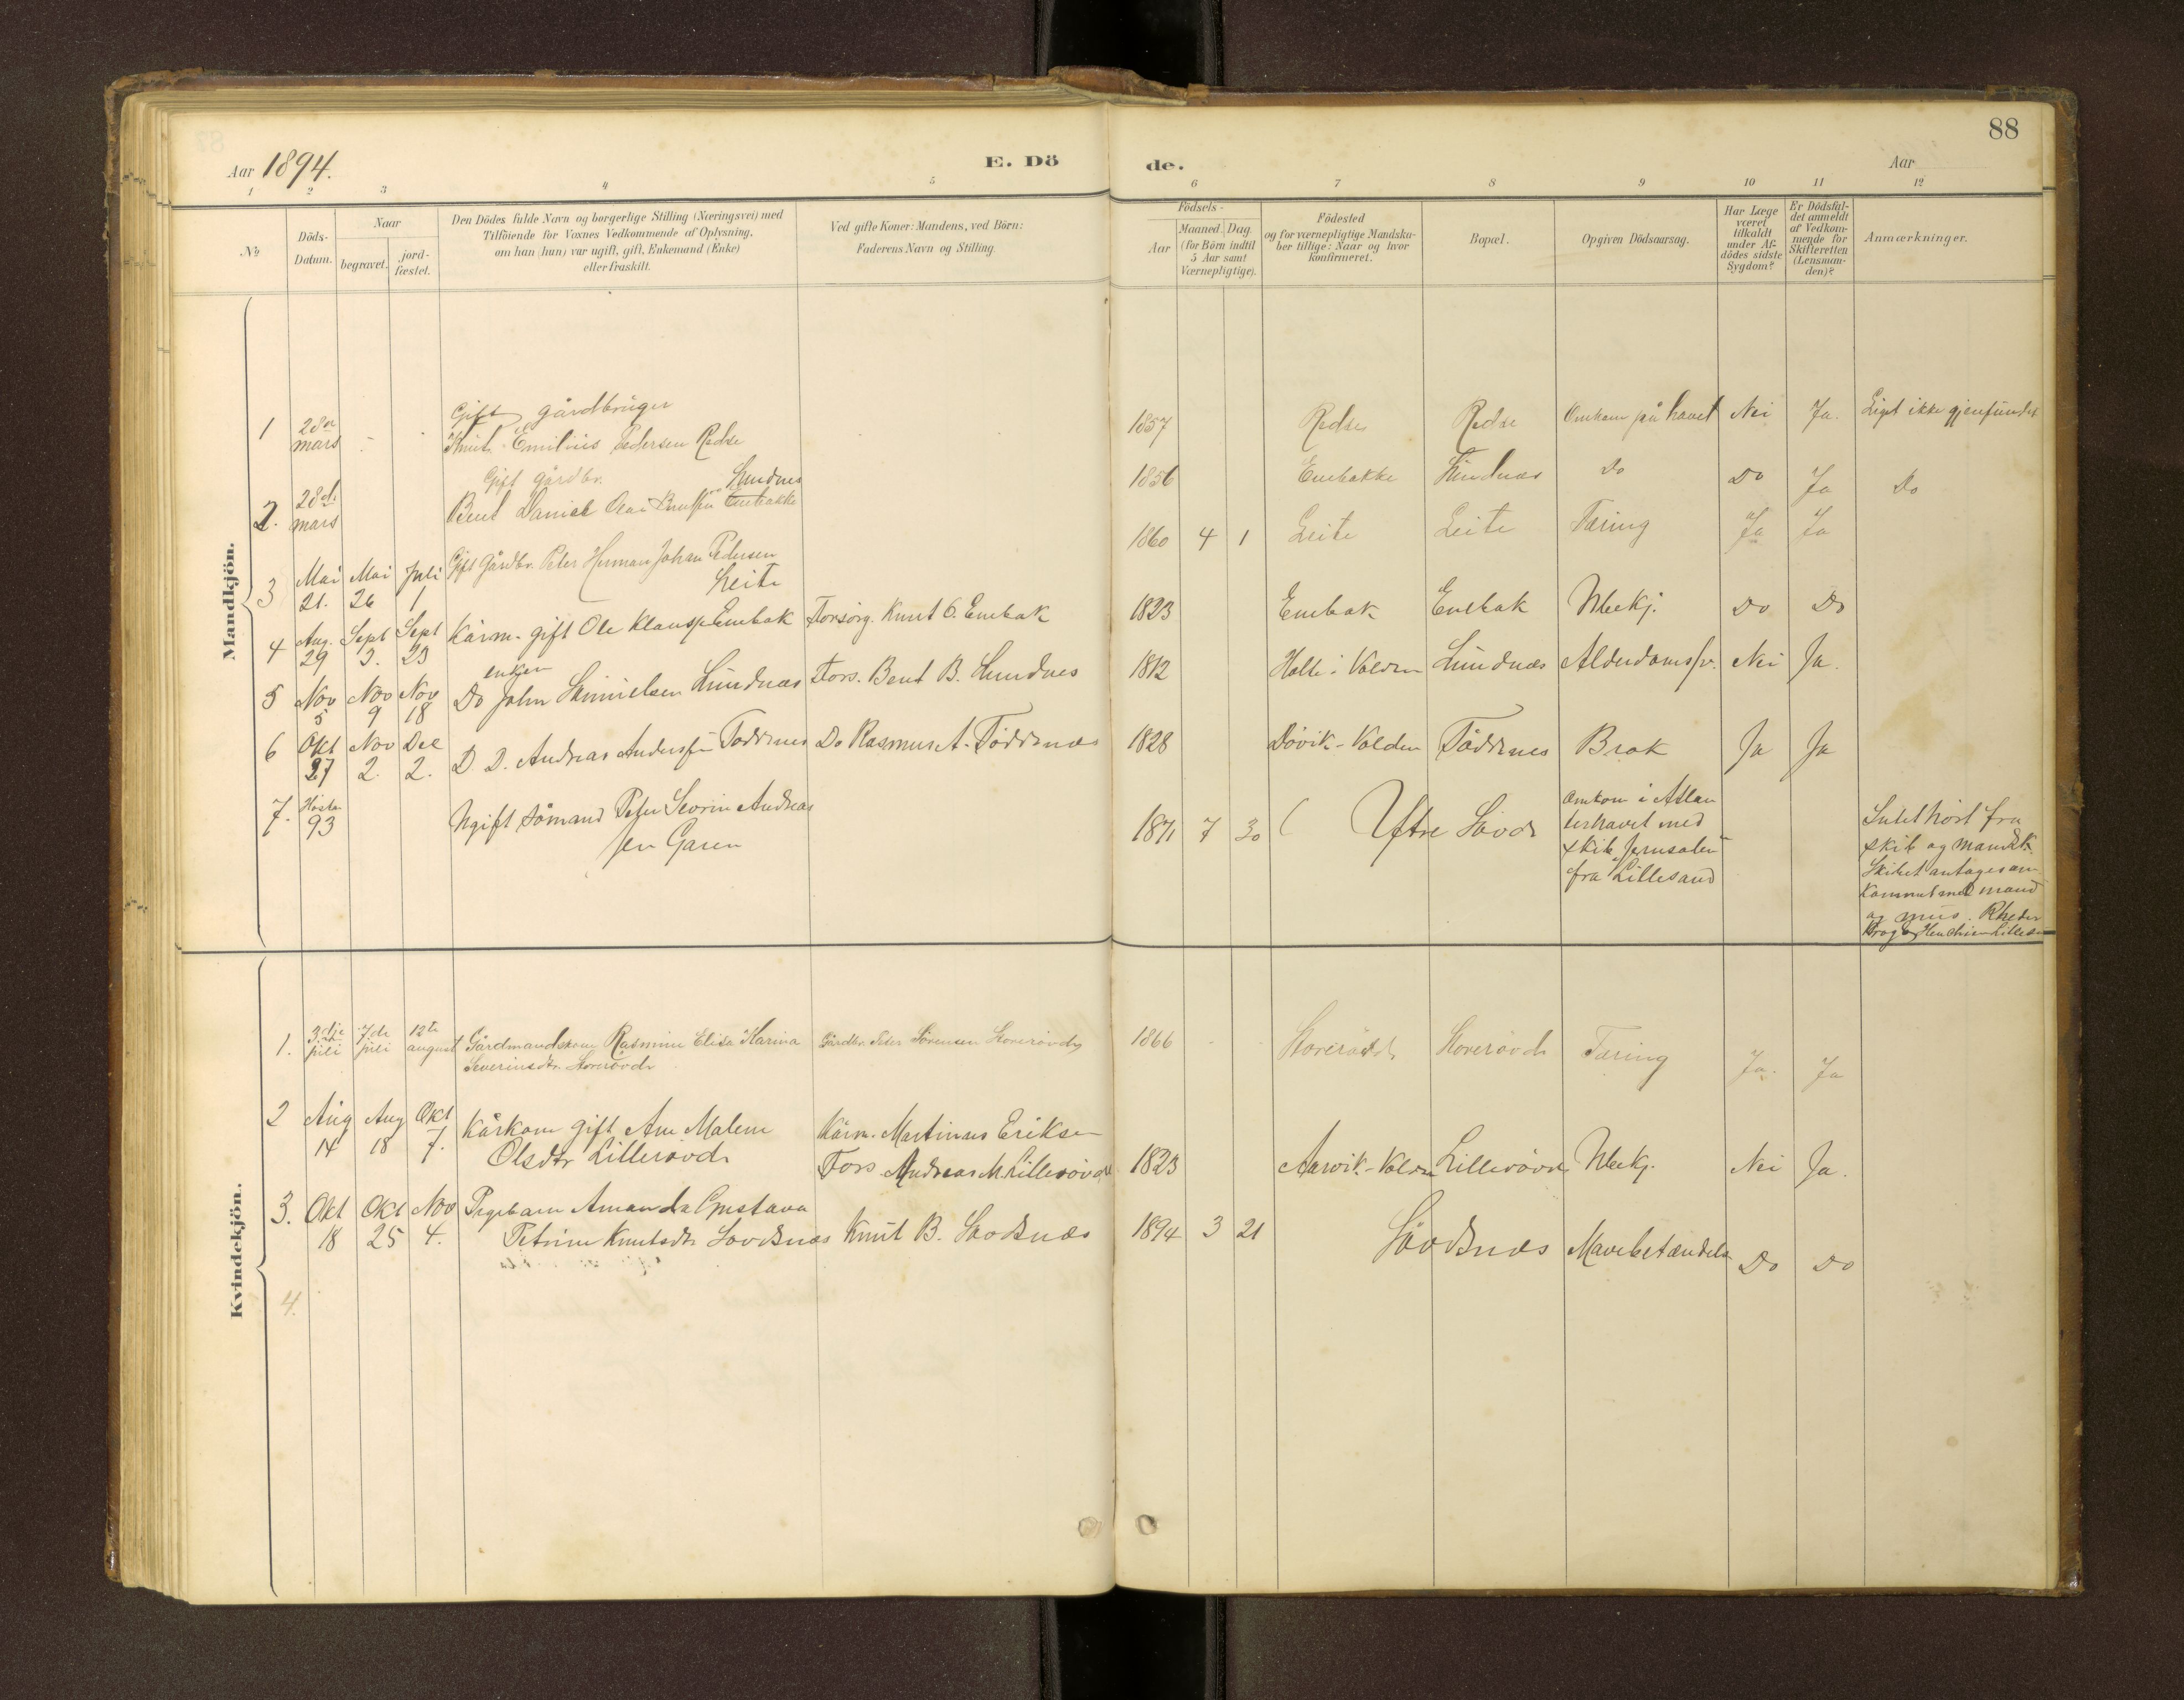 88
Aar 1894.
E. Dö
de.
Aar
1 2 3 4 5 6 7 8 9 10 11 12
No
Döds-Datum.
Naar
begravet.
jord-fæstet.
Den Dödes fulde Navn og borgerlige Stilling (Næringsvei) med
Tilföiende for Voxnes Vedkommende af Oplysning.
om han (hun) var ugift, gift, Enkemand (Enke)
eller fraskilt.
Ved gifte Koner: Mandens, ved Börn:
Faderens Navn og Stilling.
Födsels-
Aar
Maaned. Dag.
(for Börn indtil
5 Aar samt
Værnepligtige).
Födested
og for værnepligtige Mandska-
ber tillige: Naar og hvor
Konfirmeret.
Bopæl.
Opgiven Dödsaarsag.
Har Læge
været
tilkaldt
under Af-
dödes sidste
Sygdom?
Er Dödsfal-
det anmeldt
af Vedkom-
mende for
Skifteretten
(Lensman-
den)?
Anmærkninger.
Mandkjön.
1 28de mars - Gift gårdbruger
Knut Emilius Pedersen Rødse
1857 Rødse Rødse Omkom på havet Nei Ja. Liget ikke gjenfundet
2. 28de mars Gift gårdbr. Lundnes
Bent Daniel Knutsen Embakke
1856 Embakke Lundnæs Do Do Ja Do
3 Mai 21. Mai 26 Juli 1 Gift Gårdbr. Peter Herman Johan Pedersen
Leite
1860 4 1 Leite Leite Tæring Ja Ja
4 Aug. 29 Sept 3. Sept 23 Kårm. gift Ole Klaussen Embak Forsörg. Knut O. Embak
1823 Embak Embak Ubekj. Do Do
5 Nov 5 Nov 9 Nov 18 enkem
Do John Samuelsen Lundnæs Fors. Bent B. Lundnes
1812 Holte i Volden Lundnæs Alderdomssv. Nei Ja.
6 Okt 27 Nov 2. Dec 2. D. D. Andreas Andersen Töddrnes Do Rasmus A. Töddrnæs
1828 Dövik - Volden Töddrnes Brok Ja Ja
7. Høsten 93 Ugift sömand Peter Severin Andreas
sen Garen
1871 7 30 ( Ytre Løvde
Omkom i Atlan
terhavet med
skib "Jerusalem"
fra Lillesand
Intet hört fra
skib og mandsk.
Skibet antages om
kommet med mand
og mus. Rheder
Kvindekjön.
1. 3dje juli 7de juli 12te august Gårdmandskone Rasmine Elisa Karina Gårdbr. Peter Sörensen Storerövde
Severinsdtr. Storerövde
1866 Storerövde Storerövde Tæring Ja. Ja
2 Aug 14 Aug 18 Okt 7. Kårkone gift Ane Malene Kårm. Martinus Eriksen
Olsdtr Lillerövde Fors. Andreas M. Lillerövde
1823 Aarvik - Volden Lillerövde Ubekj. Nei Ja.
3. Okt 18 Okt 25 Nov 4. Pigebarn Amanda Gustava
Petrine Knutsdtr Løvdsnæs Knut B. Løvdsnæs
1894 3 21 Løvdsnæs Mavebetændelse Do Do
4.